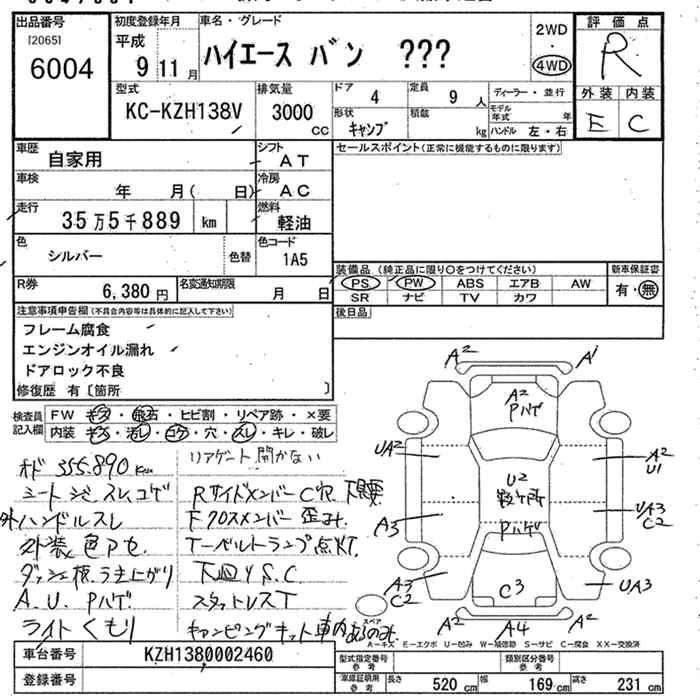 出品番号
[2065]
6004
初度登録年月
平成
9 11 月
車名・グレード
ハイエース バン ???
2WD
・
4WD
評価点
R
外装 内装
E C
型式
KC-KZH138V
排気量
3000
CC
ドア
4
定員
9 人
ディーラー・並行
形状
キャンプ
積載
kg
モデル年式 年
ハンドル 左・右
車歴
自家用
シフト
AT
車検
年 月( 日)
冷房
AC
走行
35万5千889 km
燃料
軽油
色
シルバー
色替
色コード
1A5
R券
6,380 円
名変通知期限
月 日
セールスポイント(正常に機能するものに限ります)
装備品 (純正品に限り○をつけてください)
新車保証書
PS PW ABS エアB AW
SR ナビ TV カワ
有・無
後日品
注意事項申告欄(不具合内容等は具体的に記入して下さい)
フレーム腐食
エンジンオイル漏れ
ドアロック不良
修復歴 有〔箇所 〕
検査員記入欄
FW キズ・飛石・ヒビ割・リペア跡・×要
内装 キズ・汚レ・コゲ・穴・スレ・キレ・破レ
オド 355.890 Km
シートジミスレコゲ
外ハンドルスレ
外装色アセ
ダッシュ板うき上がり
A.U. Pハゲ
ライトくもり
リアゲート開かない
RサイドメンバーC穴
下クロスメンバー歪み
T-ベルトランプ点灯
下回りS.C
スタットレスT
キャンピングキット車内あるのみ
スペア
A2
A1
A2
Pハゲ
UA2
A2
U1
U2
Pハゲ
A3
UA3
C2
A3
C2
C3
UA3
A2
A4
A2
A-キズ E-エクボ U-凹み W-補修跡 S-サビ C-腐食 XX-交換済
車台番号
KZH1380002460
登録番号
型式指定番号
参考
類別区分番号
参考
車庫証明用
参考
長さ 520 cm
幅 169 cm
高さ 231 cm